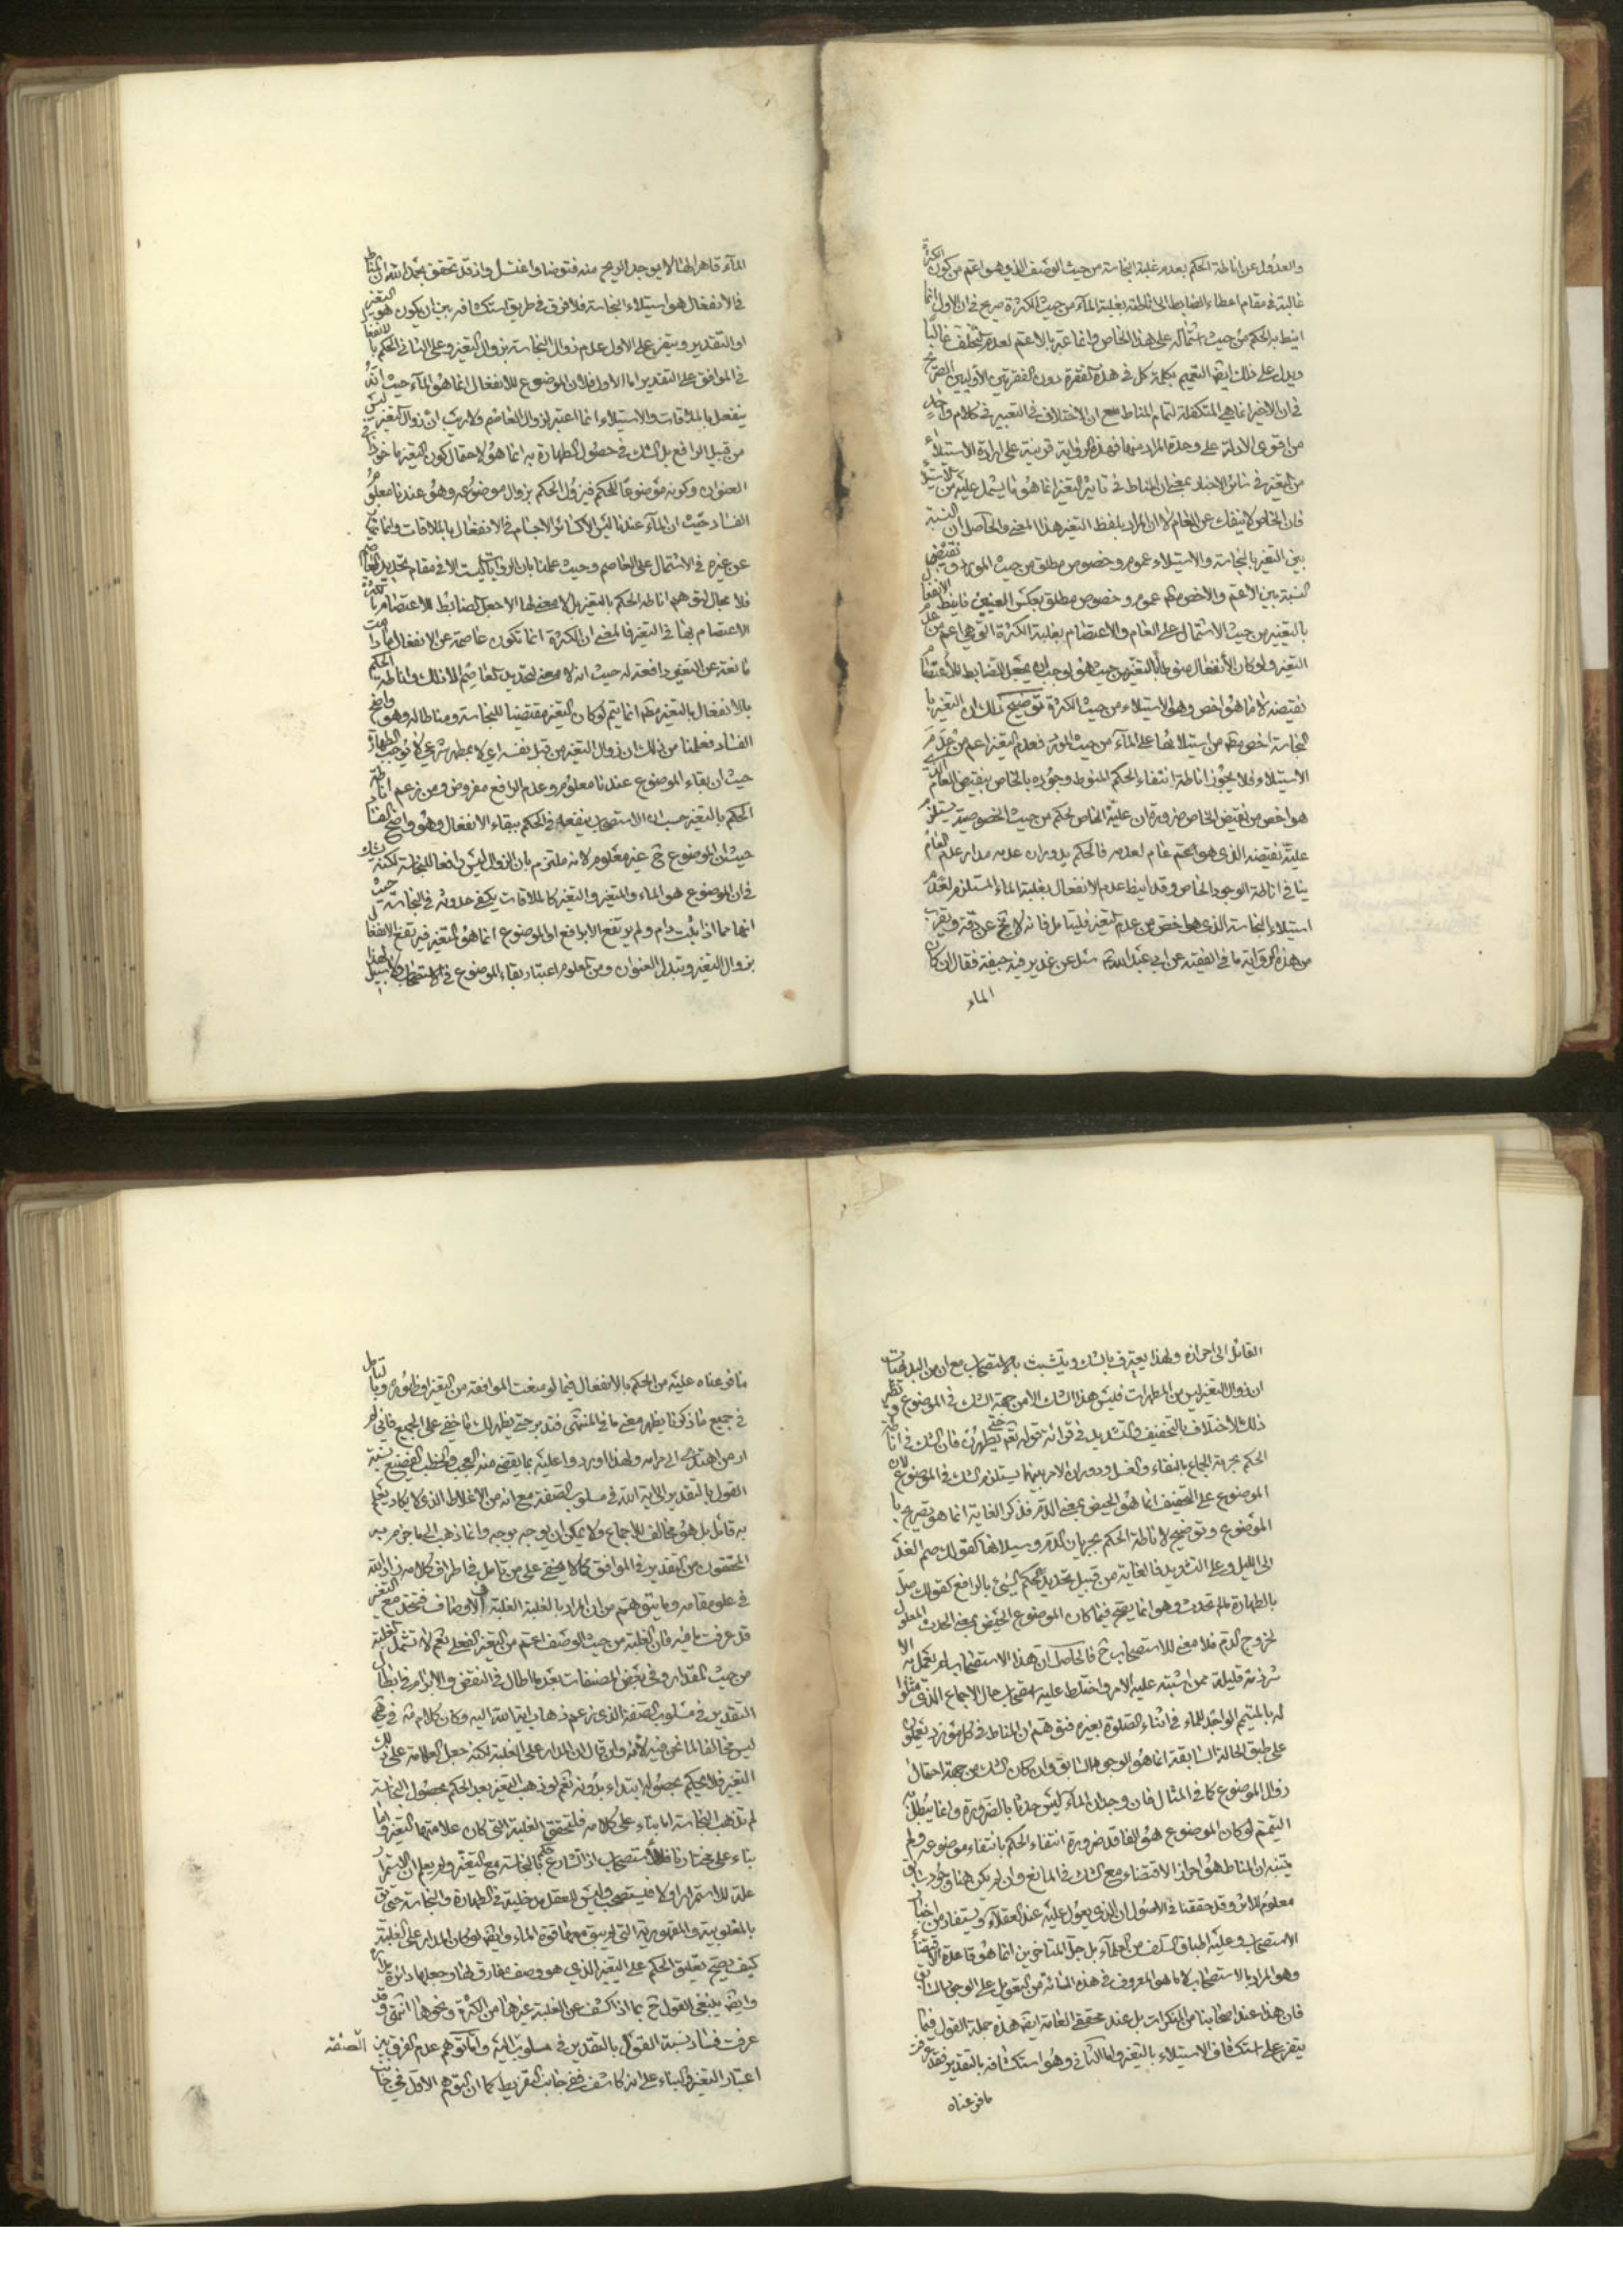 والعدول عن اناطة الحكم بعدم غلبة النجاسة من حيث الوصف الذي هو اعم من كون الكثرة
غالبة في مقام اعطاء الضابط الى اناطته بغلبة الماء من حيث الكثرة صريح في ان الاول انما
انيط به الحكم من حيث اشتماله على هذا الخاص وانما عبر بالاعم لعدم التخلف غالبا
ويدل على ذلك ايضا التعميم بكلمة كل في هذه الفقرة دون الفقرتين الاوليين الصريح
في ان الاخير انما هي المتكفلة لتمام المناط مع ان الاختلاف في التعبير في كلام واحد
من اقوى الادلة على وحدة المراد منهما فهذه الرواية قرينة على ارادة الاستيلاء
من التغير في سائر الاخبار بمعنى ان المناط في تاثير التغير انما هو ما يشمل عليه من الاستيلاء
فان الخاص لا ينفك عن العام لا ان المراد بلفظ التغير هذا المعنى والحاصل ان النسبة
بين التغير بالنجاسة والاستيلاء عموم وخصوص مطلق من حيث المورد ونقيض
النسبة بين الاعم والاخص عموم وخصوص مطلق بعكس العينين فانيط الانفعال
بالتغير من حيث الاشتمال على العام والاعتصام بغلبة الكثرة التي هي اعم من عدم
التغير ولو كان الانفعال منوطا بالتغير من حيث هو لوجب ان يجعل الضابط للاعتصام
نقيضه لا ما هو اخص وهو الاستيلاء من حيث الكثرة توضيح ذلك ان التغير با
لنجاسة اخص من استيلائها على الماء من حيث المورد فعدم التغير اعم من عدم
الاستيلاء فلا يجوز اناطة انتفاء الحكم المنوط وجوده بالخاص بنقيض العام الذي
هو اخص من نقيض الخاص ضرورة ان علية الخاص لحكم من حيث الخصوصية يستلزم
علية نقيضه الذي هو اعم لعدمه فالحكم بدوران عدمه مدار عدم العام
ينافي اناطة الوجود بالخاص وقد انيط عدم الانفعال بغلبة الماء المستلزم لعدم
استيلاء النجاسة الذي هو اخص من عدم التغير فليتامل فانه لا يخ عن دقة ويقرب
من هذه الرواية ما في الفقيه عن ابي عبد الله سئل عن غدير فيه جيفة فقال ان كان
الماء
الماء قاهرا لها لا يوجد الريح منه فتوضا واغتسل واذ قد تحقق بحمد الله ان المناط
في الانفعال هو استيلاء النجاسة فلا فرق في طريق استكشافه بين ان يكون هو التغير
او التقدير ويتفرع على الاول عدم زوال النجاسة بزوال التغير وعلى الثاني الحكم بالانفعال
في الموافق على التقدير اما الاول فلان الموضوع للانفعال انما هو الماء حيث انه
ينفعل بالملاقات والاستيلاء انما اعتبر لزوال العاصم ولا ريب ان زوال التغير ليس
من قبيل الرافع بل الشك في حصول الطهارة به انما هو لاحتمال كون التغير ماخوذا في
العنوان وكونه موضوعا للحكم فيزول الحكم بزوال موضوعه وهو عندنا معلوم
الفساد حيث ان الماء عندنا ليس الا كسائر الاجسام في الانفعال بالملاقات وانما تميز
عن غيره في الاشتمال على العاصم وحيث علمنا بان الروايات ليست الا في مقام تحديد العاصم
فلا مجال لتوهم اناطة الحكم بالتغير بل لا معنى لها الا جعل الضابط للاعتصام بالكثرة
الاعتصام بها في التغير فالمعنى ان الكثرة انما تكون عاصمة عن الانفعال ما دامت
مانعة عن التغير دافعة له حيث انه لا معنى لتحديد العاصم الا ذلك واناطة الحكم
بالانفعال بالتغير انما يتم لو كان التغير مقتضيا للنجاسة ومناطا له وهو واضح
الفساد فعلمنا من ذلك ان زوال التغير من قبل نفسه اي لا بمطهر شرعي لا يوجب الطهارة
حيث ان بقاء الموضوع عندنا معلوم وعدم الرافع مفروض ومن زعم اناطة
الحكم بالتغير حسب ان الاستصحاب ينفعه في الحكم ببقاء الانفعال وهو واضح الفساد
حيث ان الموضوع ح غير معلوم لانه ملتزم بان الزوال ليس رافعا للنجاسة لكنه يشك
في ان الموضوع هو الماء والمتغير والتغير كالملاقات يكفي حدوثه في النجاسة حيث
انها مما اذا ثبت دام ولم يرتفع الا برافع او الموضوع انما هو المتغير فيرتفع الانفعال
بزوال التغير وتبدل العنوان ومن المعلوم اعتبار بقاء الموضوع في الاستصحاب ولا سبيل لهذا
القائل الى احرازه ولهذا يعترف بالشك ويتشبث بالاستصحاب مع ان من البديهيات
ان زوال التغير ليس من المطهرات فليس هذا الشك الا من جهة الشك في الموضوع ونظير
ذلك الاختلاف بالتخفيف والتشديد في قرائة قوله تعم حتى يطهرن فان الشك في اناطة
الحكم بحرمة الجماع بالنقاء والغسل ودوران الامر بينهما يستلزم الشك في الموضوع لان
الموضوع على التخفيف انما هو الحيض بمعنى الدم فذكر الغاية انما هو تصريح با
الموضوع وتوضيح لاناطة الحكم بجريان الدم وسيلانها كقولك صم الغد
الى الليل وعلى التشديد فالغاية من قبيل تحديد الحكم الشيء بالرافع كقولك صل
بالطهارة ما لم تحدث وهو انما يصح فيما كان الموضوع الحيض بمعنى الحدث المعلول
لخروج الدم فلا معنى للاستصحاب ح فالحاصل ان هذا الاستصحاب لم يعمل به الا
شرذمة قليلة ممن اشتبه عليه الامر واختلط عليه استصحاب حال الاجماع الذي مثلوا
له بالمتيمم الواجد للماء في اثناء الصلوة بغيره فتوهم ان المناط في كل مورد يعملون
على طبق الحالة السابقة انما هو الوجود السابق وان كان الشك من جهة احتمال
زوال الموضوع كما في المثال فان وجدان الماء ليس حدثا بالضرورة وانما يبطل به
التيمم لو كان الموضوع هو الفاقد ضرورة انتفاء الحكم بانتفاء موضوعه ولم
يتنبه ان المناط هو احراز الاقتضاء مع الشك في المانع وان لم يكن هنا وجود سابق
معلوم للاثر وقد حققنا في الاصول ان الذي يعول عليه عند العقلاء ويستفاد من اخبار
الاستصحاب وعليه اطباق السلف من العلماء بل جل المتاخرين انما هو قاعدة الاقتضاء
وهو المراد بالاستصحاب لا ما هو المعروف في هذه المائة من التعويل على الوجود السابق
فان هذا عند اصحابنا من المنكرات بل عند محققي العامة ايضا هذه جملة القول فيما
يتفرع على استكشاف الاستيلاء بالتغير واما الثاني وهو استكشافه بالتقدير فقد عرفت
ما فرعناه
ما فرعناه عليه من الحكم بالانفعال فيما لو منعت الموافقة من التغير وظهوره وبالتامل
في جميع ما ذكرنا يظهر معنى ما في المنتهى فتدبر حتى يظهر لك ما خفي على الجميع فاني لم
ار من اهتدى الى مرامه ولهذا اوردوا عليه بما يقضى منه العجب والخطب الفضيع نسبة
القول بالتقدير الى اية الله في مسلوب الصفة مع انه من الاغلاط الذي لا يكاد يعلم
به قائل بل هو مخالف للاجماع ولا يمكن ان يوجه بوجه وانما ذهب الى ما جزم به
المحققون من التقدير في الموافق كما لا يخفى على من تامل في اطراف كلامه زاد الله
في علو مقامه وما يتوهم من ان المراد بالغلبة الغلبة في الاوصاف فتتحد مع التغير
قد عرفت ما فيه فان الغلبة من حيث الوصف اعم من التغير الفعلي نعم لا تشمل الغلبة
من حيث المقدار وفي بعض المصنفات بعد ما اطال في النقض والابرام في ابطال
التقدير في مسلوب الصفة الذي زعم ذهاب اية الله اليه وكان كلامه في
ليس مخالفا لما نحن فيه لانه وان قال ان المدار على الغلبة لكنه جعل العلامة على ذلك
التغير فلا يحكم بحصولها ابتداء بدونه نعم لو ذهب التغير بعد الحكم بحصول النجاسة
لم تذهب النجاسة اما بناء على كلامه فلتحقق الغلبة التي كان علامتها التغير واما
بناء على مختارنا فللاستصحاب اذ الشارع حكم بالنجاسة مع التغير ولم يعلم ان الاستمرار
علة للاستمرار او لا فيستصحب وليس للعقل مدخلية في الطهارة والنجاسة حتى يق
بالمغلوبية والمقهورية التي لم يبق معها قوة الماء وايضا لو كان المدار على الغلبة
كيف يصح تعليق الحكم على التغير الذي هو وصف مفارق لها وجعلها دائرة مداره
وايضا ينبغي القول ح بما اذا كشف عن الغلبة غيرها من الكثرة ونحوها انتهى وقد
عرفت فساد نسبة القول بالتقدير في مسلوب الصفة اليه واما توهم عدم الفرق بين
اعتبار التغير والبناء على انه كاشف ففي جانب التفريط كما ان التوهم الاول في جانب